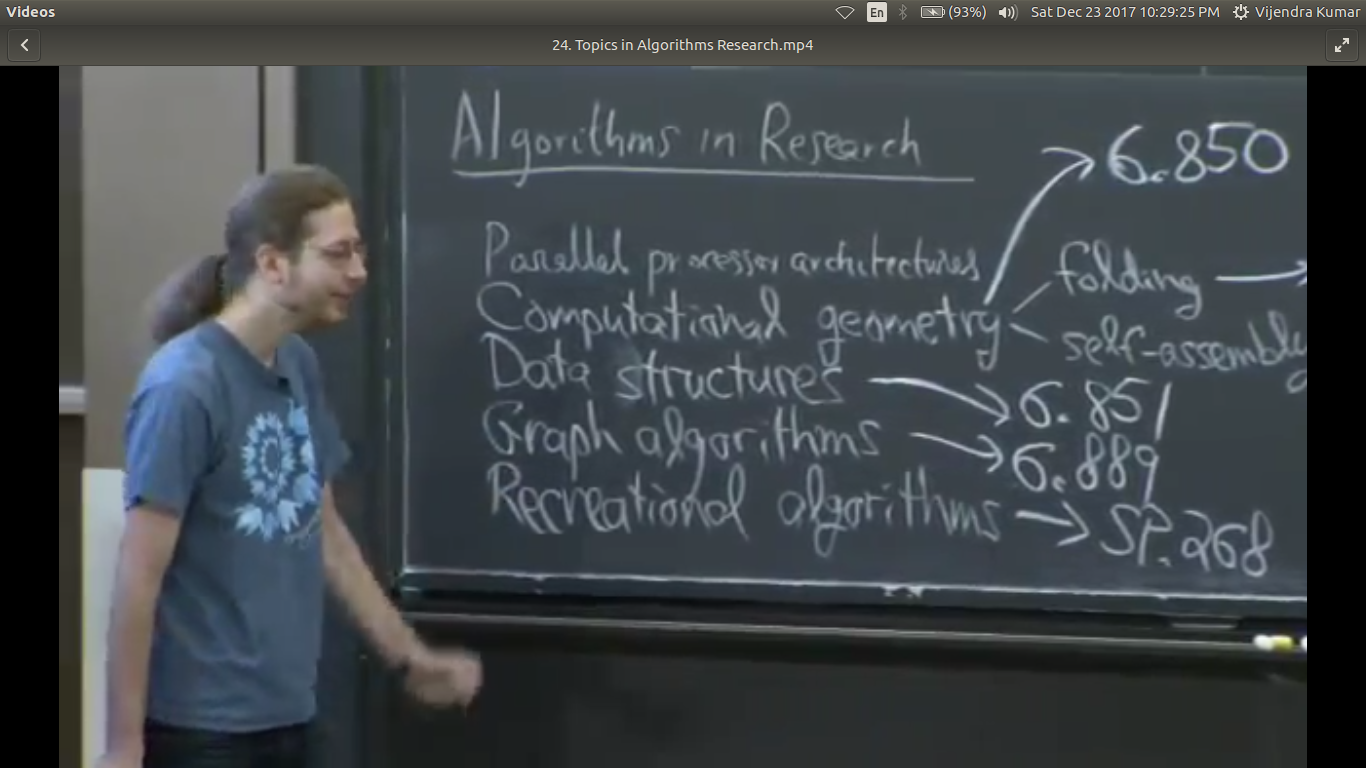 Videos En (93%) Sat Dec 23 2017 10:29:25 PM Vijendra Kumar
24. Topics in Algorithms Research.mp4
Algorithms in Research
6.850
Parallel processor architectures
folding
Computational geometry
self-assembly
Data structures
6.851
Graph algorithms
6.889
Recreational algorithms
SP.268